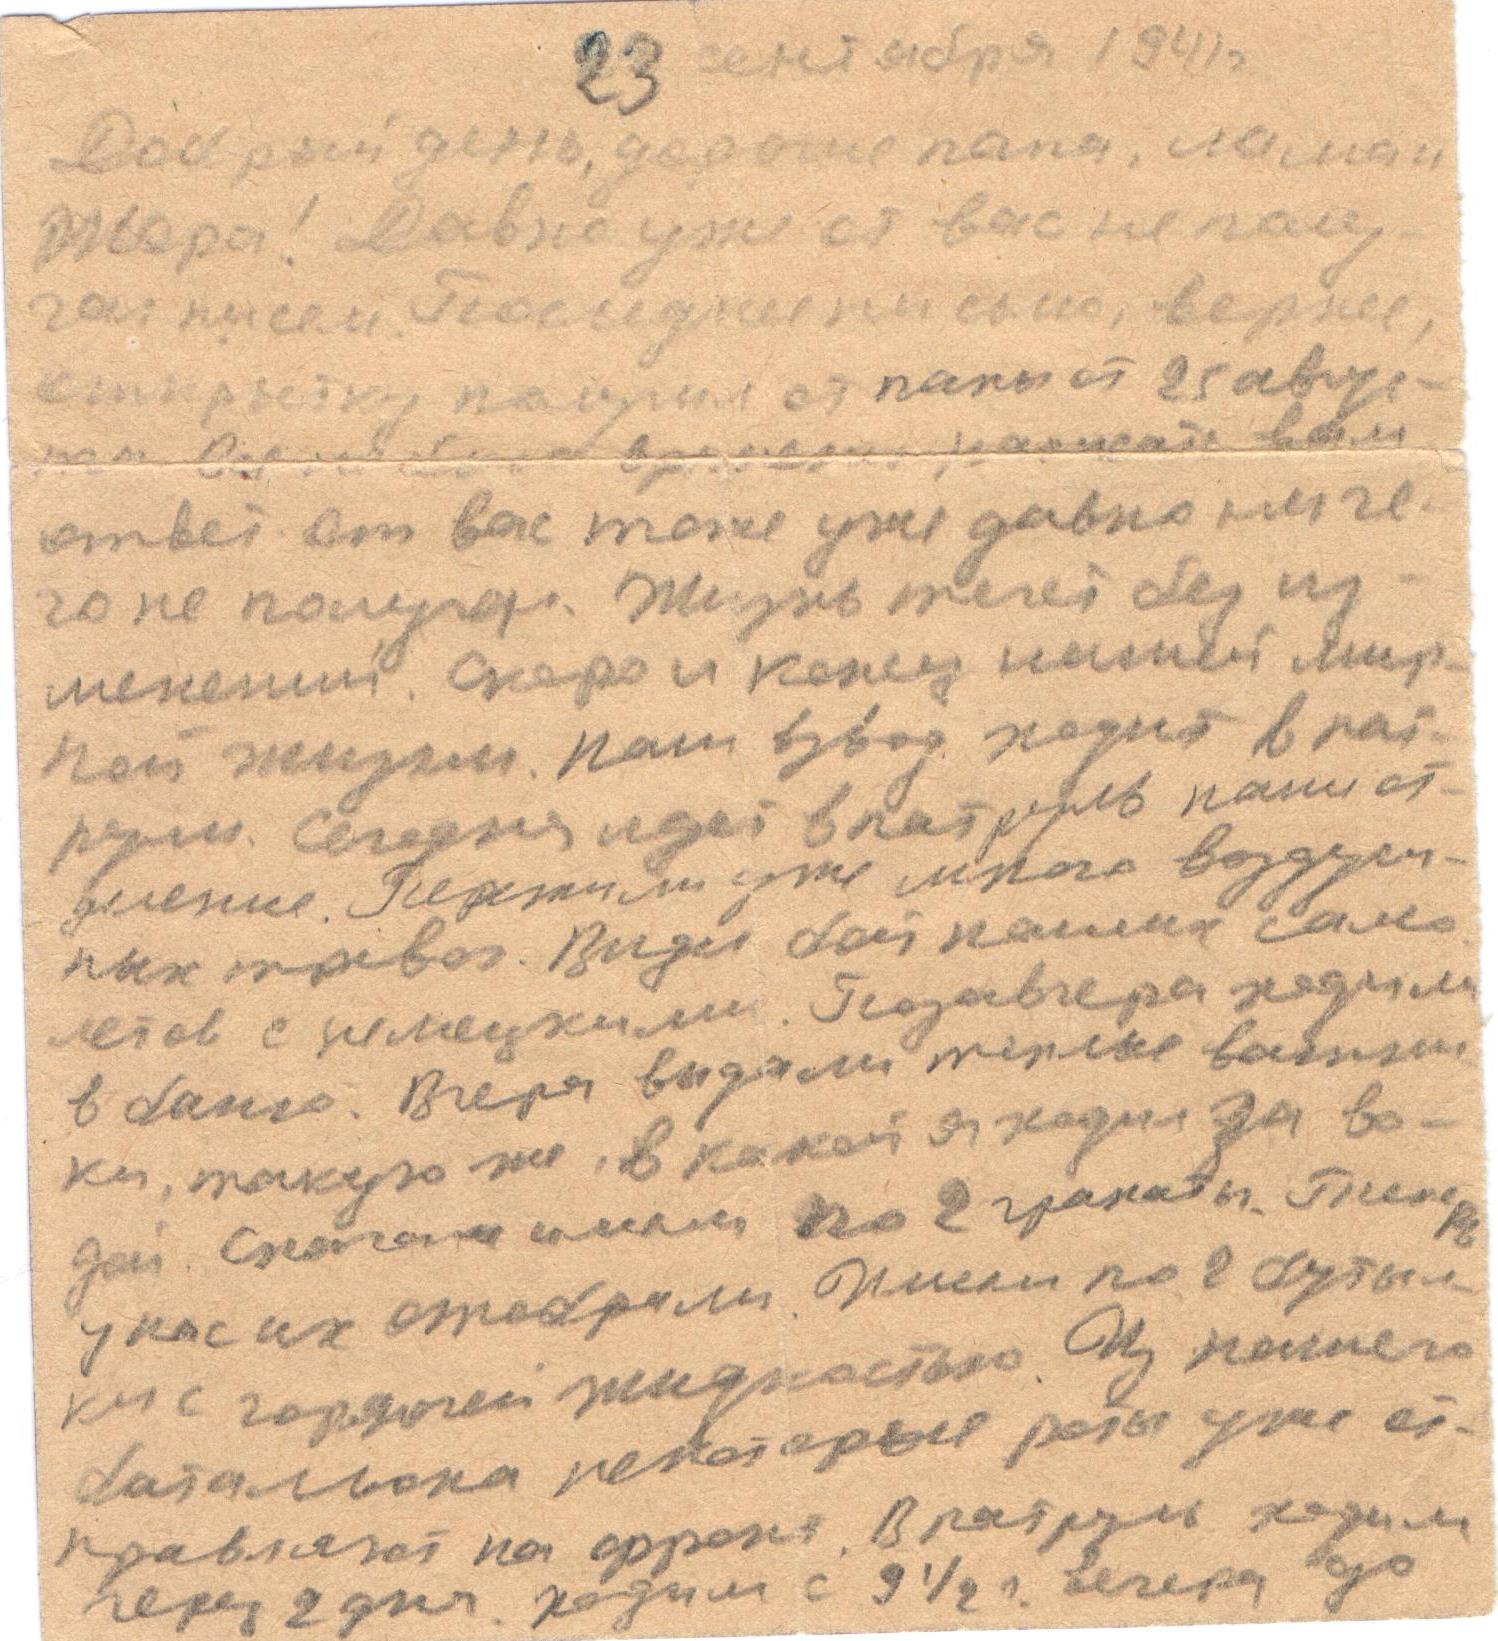 23 сентября 1941г.
Добрый день, дорогие папа, мама и
Жора! Давно уже от вас не полу-
чал писем. Последнее письмо, вернее,
открытку получил от папы от 25 авгус-
та. Все не было времени написать вам
ответ. От вас тоже уже давно ниче-
го не получал. Жизнь течет без из-
менений. Скоро и конец нашей мир-
ной жизни. Наш взвод ходит в пат-
рули. Сегодня идет в патруль наше от-
деление. Пережили уже много воздуш-
ных тревог. Видел бой наших само-
летов с немецкими. Позавчера ходили
в баню. Вчера выдали теплые
ки, такую же, в какой я ходил за во-
дой. Сначала имели по 2 гранаты. Теперь
у нас их отобрали. Имели по 2 бутыл-
ки с горючей жидкостью. Из нашего
батальона некоторые роты уже от-
правляют на фронт. В патруль ходим
через 2 дня. Ходим с 9 1/2 ч. вечера до